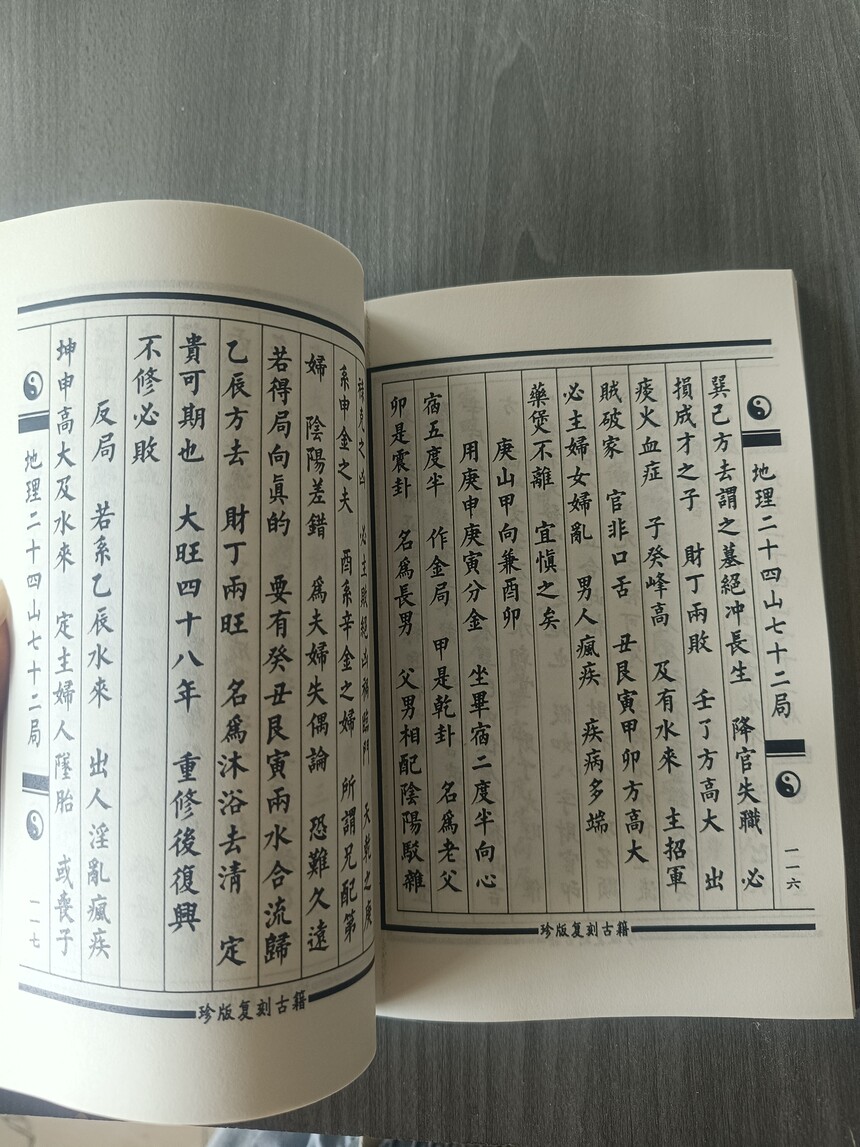 地理二十四山七十二局
一一六
巽己方去謂之墓絕冲長生 降官失職 必
損成才之子 財丁兩敗 壬了方高大 出
痰火血症 子癸峰高 及有水來 主招軍
賊破家 官非口舌 丑艮寅甲卯方高大
必主婦女婦亂 男人瘋疾 疾病多端
藥煲不離 宜慎之矣
庚山甲向兼酉卯
用庚申庚寅分金 坐畢宿二度半向心
宿五度半 作金局 甲是乾卦 名爲老父
卯是震卦 名爲長男 父男相配陰陽駁雜
珍版复刻古籍
之凶 必主敗絕凶禍臨門 天乾之庚
系申金之夫 酉系辛金之婦 所謂兄配第
婦 陰陽差錯 爲夫婦失偶論 恐難久遠
若得局向眞的 要有癸丑艮寅兩水合流歸
乙辰方去 財丁兩旺 名爲沐浴去清 定
貴可期也 大旺四十八年 重修後復興
不修必敗
反局 若系乙辰水來 出人淫亂瘋疾
坤申高大及水來 定主婦人墜胎 或喪子
地理二十四山七十二局
一一七
珍版复刻古籍